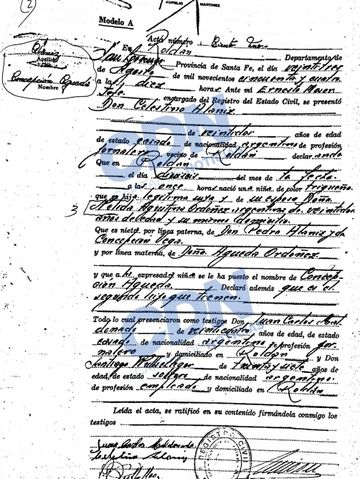 2
Modelo A
Alaniz
Apellido
Concepción Agueda
Nombre
Acta número Ciento Tres
En Roldán Departamento de
San Lorenzo Provincia de Santa Fe, el día veintitres
de Agosto de mil novecientos cincuenta y cuatro
a la diez horas Ante mi Ernesto
Jefe encargado del Registro del Estado Civil, se presentó
Don Celestino Alaniz
de veintidos años de edad
de estado casado de nacionalidad argentina de profesión
jornalero vecino de Roldán declarando
Que en Roldán
el día del mes de la fecha
a las once horas nació un a niña de color trigueño
que es hija legítima suya y de su esposa Doña
3 Nélida Agustina Ordoñez argentina de veintidos
años de edad y su mismo domicilio
Que es nieta por línea paterna, de Don Pedro Alaniz y de
Concepción Vega
y por línea materna, de Doña Agueda Ordoñez
y que a la expresada niña se le ha puesto el nombre de Concep-
ción Agueda. Declaró además que es el
segundo hijo que tienen.
Todo lo cual presenciaron como testigos Don Juan Carlos Mal-
donado de veinticuatro años de edad, de estado
casado de nacionalidad argentina de profesión jor-
nalero y domiciliado en Roldán, y Don
Santiago de treinta y siete años de
edad, de estado soltero de nacionalidad argentina
de profesión empleado y domiciliado en Roldán
Leída el acta, se ratificó en su contenido firmándola conmigo los
testigos
Juan Carlos Maldonado
Celestino Alaniz
REGISTRO CIVIL
CDN
CDN